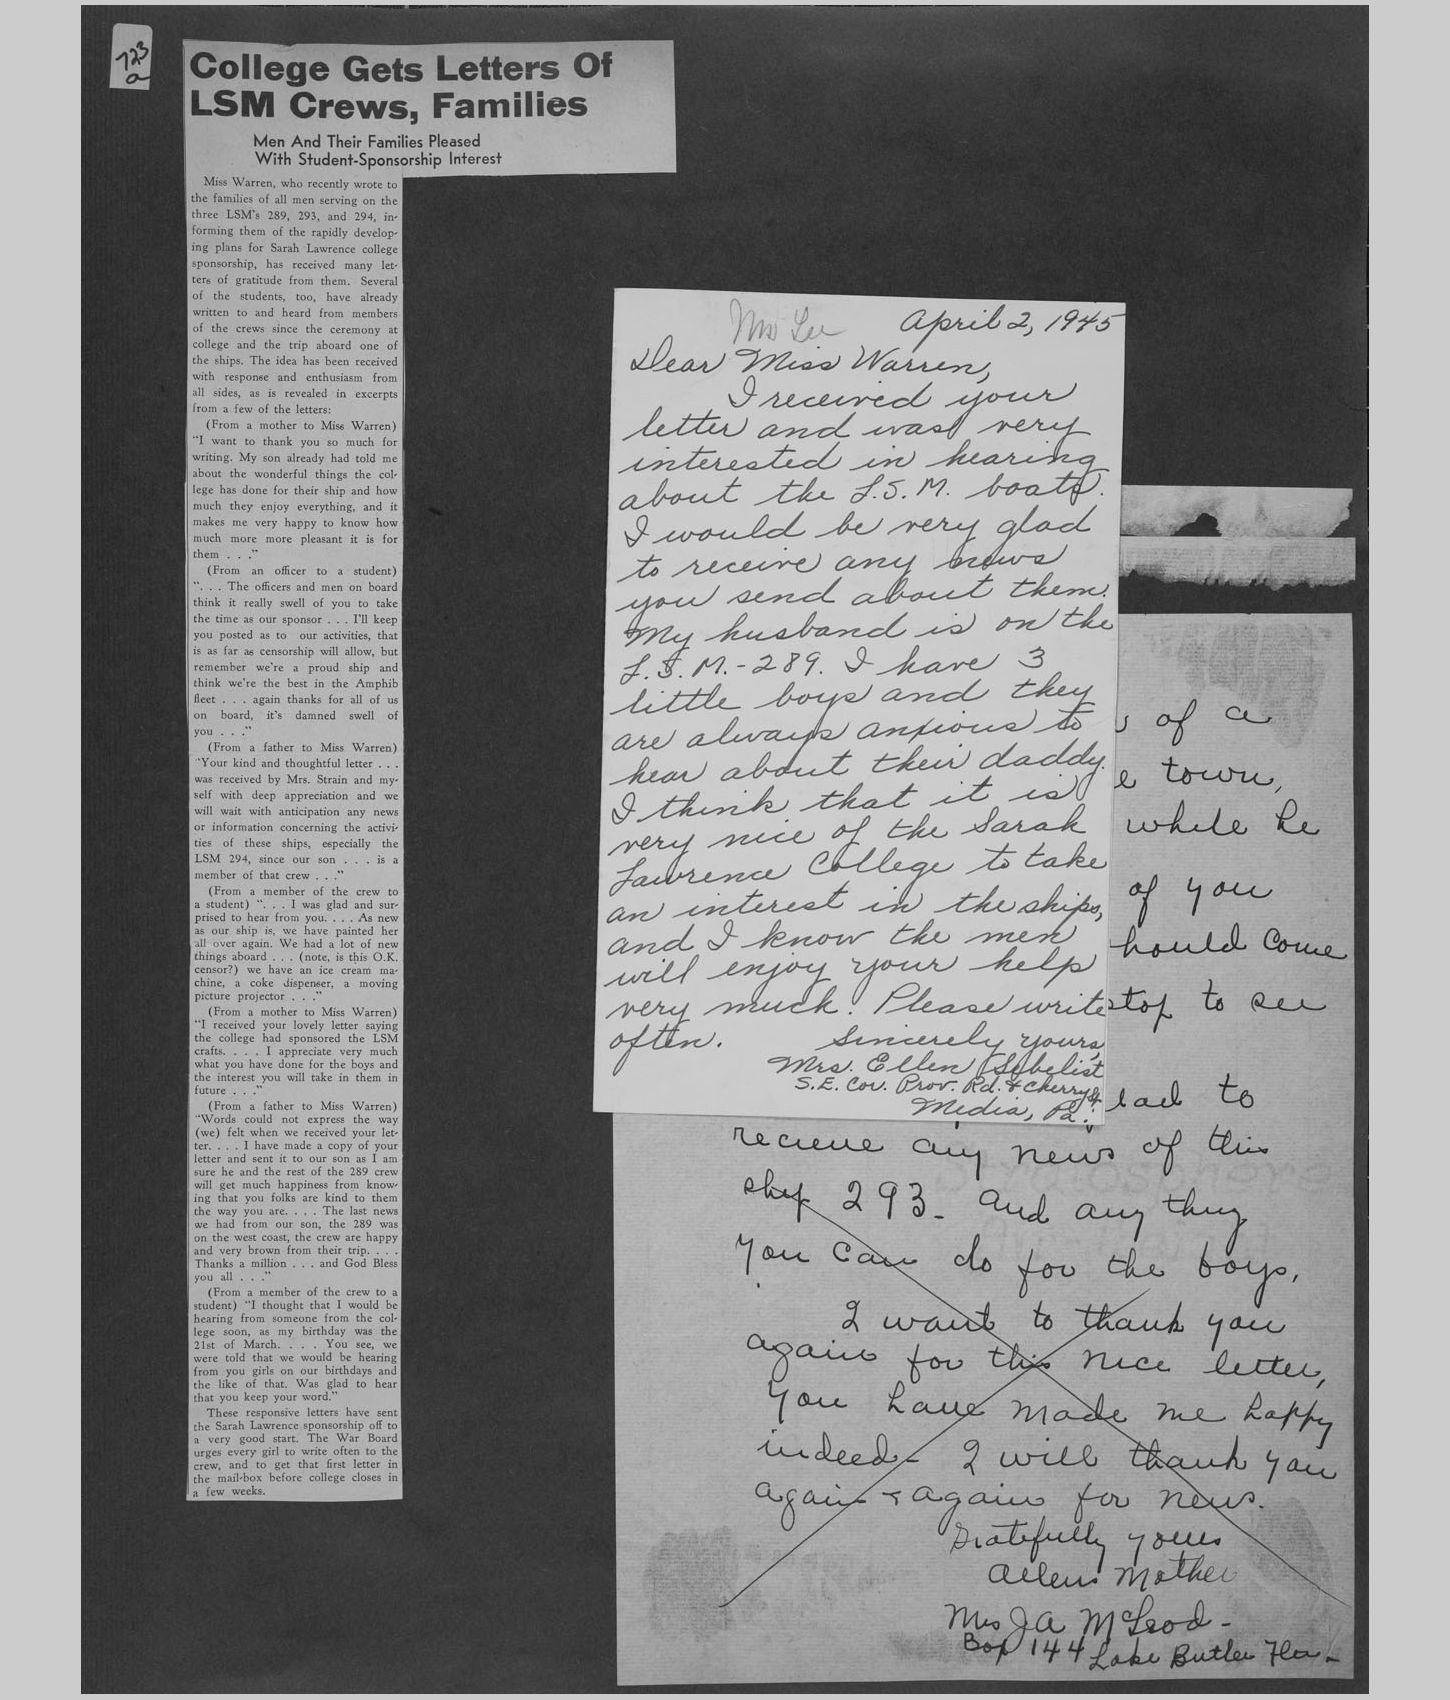 723
a
College Gets Letters Of
LSM Crews, Families
Men And Their Families Pleased
With Student-Sponsorship Interest
Miss Warren, who recently wrote to
the families of all men serving on the
three LSM's 289, 293, and 294, in-
forming them of the rapidly develop-
ing plans for Sarah Lawrence college
sponsorship, has received many let-
ters of gratitude from them. Several
of the students, too, have already
written to and heard from members
of the crews since the ceremony at
college and the trip aboard one of
the ships. The idea has been received
with response and enthusiasm from
all sides, as is revealed in excerpts
from a few of the letters:
(From a mother to Miss Warren)
"I want to thank you so much for
writing. My son already had told me
about the wonderful things the col-
lege has done for their ship and how
much they enjoy everything, and it
makes me very happy to know how
much more more pleasant it is for
them . . ."
(From an officer to a student)
". . . The officers and men on board
think it really swell of you to take
the time as our sponsor . . . I'll keep
you posted as to our activities, that
is as far as censorship will allow, but
remember we're a proud ship and
think we're the best in the Amphib
fleet . . . again thanks for all of us
on board, it's damned swell of
you . . ."
(From a father to Miss Warren)
"Your kind and thoughtful letter . . .
was received by Mrs. Strain and my-
self with deep appreciation and we
will wait with anticipation any news
or information concerning the activi-
ties of these ships, especially the
LSM 294, since our son . . . is a
member of that crew . . ."
(From a member of the crew to
a student) ". . . I was glad and sur-
prised to hear from you. . . . As new
as our ship is, we have painted her
all over again. We had a lot of new
things aboard . . . (note, is this O.K.
censor?) we have an ice cream ma-
chine, a coke dispenser, a moving
picture projector . . ."
(From a mother to Miss Warren)
"I received your lovely letter saying
the college had sponsored the LSM
crafts. . . . I appreciate very much
what you have done for the boys and
the interest you will take in them in
future . . ."
(From a father to Miss Warren)
"Words could not express the way
(we) felt when we received your let-
ter. . . . I have made a copy of your
letter and sent it to our son as I am
sure he and the rest of the 289 crew
will get much happiness from know-
ing that you folks are kind to them
the way you are. . . . The last news
we had from our son, the 289 was
on the west coast, the crew are happy
and very brown from their trip. . . .
Thanks a million . . . and God Bless
you all . . ."
(From a member of the crew to a
student) "I thought that I would be
hearing from someone from the col-
lege soon, as my birthday was the
21st of March. . . . You see, we
were told that we would be hearing
from you girls on our birthdays and
the like of that. Was glad to hear
that you keep your word."
These responsive letters have sent
the Sarah Lawrence sponsorship off to
a very good start. The War Board
urges every girl to write often to the
crew, and to get that first letter in
the mail-box before college closes in
a few weeks.
April 2, 1945
Dear Miss Warren,
I received your
letter and was very
interested in hearing
about the L.S.M. boats.
I would be very glad
to receive any news
you send about them.
My husband is on the
L.S.M.-289. I have 3
little boys and they
are always anxious to
hear about their daddy.
I think that it is
very nice of the Sarah
Lawrence College to take
an interest in the ships,
and I know the men
will enjoy your help
very much. Please write
often.
Sincerely yours,
Mrs. Ellen Sebelist
S.E. Cor. Prov. Rd. & Cherry St.
Media, Pa.
of a
town,
while he
of you
hould come
stop to see
lad to
recieve any news of this
ship 293 - and any thing
you can do for the boys,
I want to thank you
again for this nice letter,
You have made me happy
indeed - I will thank you
again & again for news.
Gratefully yours
Allens Mother
Mrs J A McLeod -
Box 144 Lake Butler Fla -